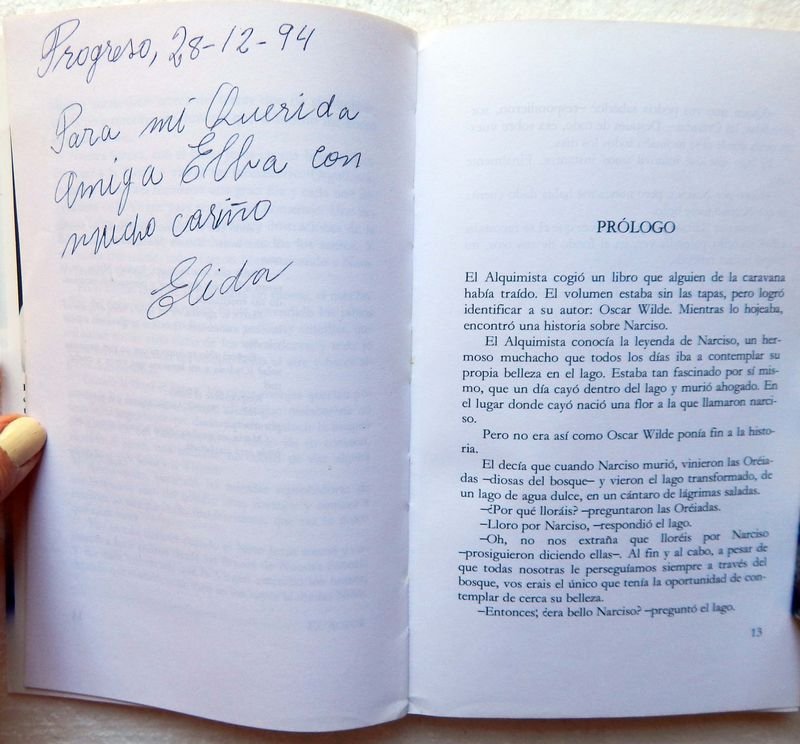 Progreso, 28-12-94
Para mi Querida
amiga Elba con
mucho cariño
Elida
PRÓLOGO
El Alquimista cogió un libro que alguien de la caravana
había traído. El volumen estaba sin las tapas, pero logró
identificar a su autor: Oscar Wilde. Mientras lo hojeaba,
encontró una historia sobre Narciso.
El Alquimista conocía la leyenda de Narciso, un her-
moso muchacho que todos los días iba a contemplar su
propia belleza en el lago. Estaba tan fascinado por sí mis-
mo, que un día cayó dentro del lago y murió ahogado. En
el lugar donde cayó nació una flor a la que llamaron narci-
so.
Pero no era así como Oscar Wilde ponía fin a la histo-
ria.
El decía que cuando Narciso murió, vinieron las Oréia-
das –diosas del bosque– y vieron el lago transformado, de
un lago de agua dulce, en un cántaro de lágrimas saladas.
–¿Por qué lloráis? –preguntaron las Oréiadas.
–Lloro por Narciso, –respondió el lago.
–Oh, no nos extraña que lloréis por Narciso
–prosiguieron diciendo ellas–. Al fin y al cabo, a pesar de
que todas nosotras le perseguíamos siempre a través del
bosque, vos erais el único que tenía la oportunidad de con-
templar de cerca su belleza.
–Entonces, ¿era bello Narciso? –preguntó el lago.
13